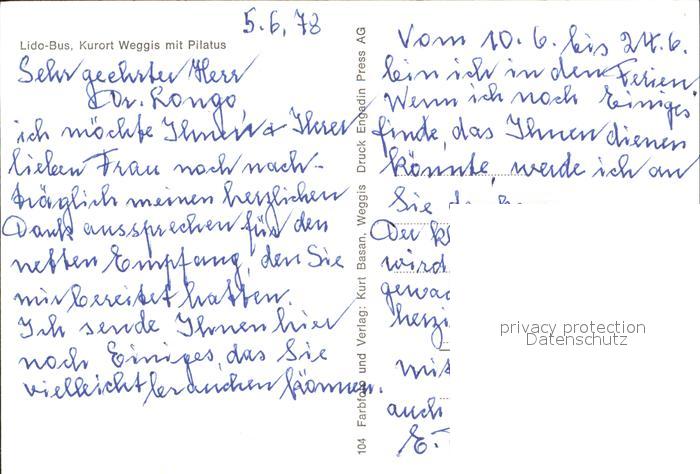 5.6.78
Lido-Bus, Kurort Weggis mit Pilatus
Sehr geehrter Herr
Dr. Longo,
ich möchte Ihnen + Ihrer
lieben Frau noch nach-
träglich meinen herzlichen
Dank aussprechen für den
netten Empfang, den Sie
mir bereitet hatten.
Ich sende Ihnen hier
noch Einiges, das Sie
vielleicht brauchen können.
104 Farbfoto und Verlag: Kurt Basan, Weggis Druck Engadin Press AG
Vom 10.6. bis 24.6.
bin ich in den Ferien.
Wenn ich noch Einiges
finde, das Ihnen dienen
könnte, werde ich an
Sie
Der
wird
gewa
herzi
mit
auch
E.
privacy protection
Datenschutz